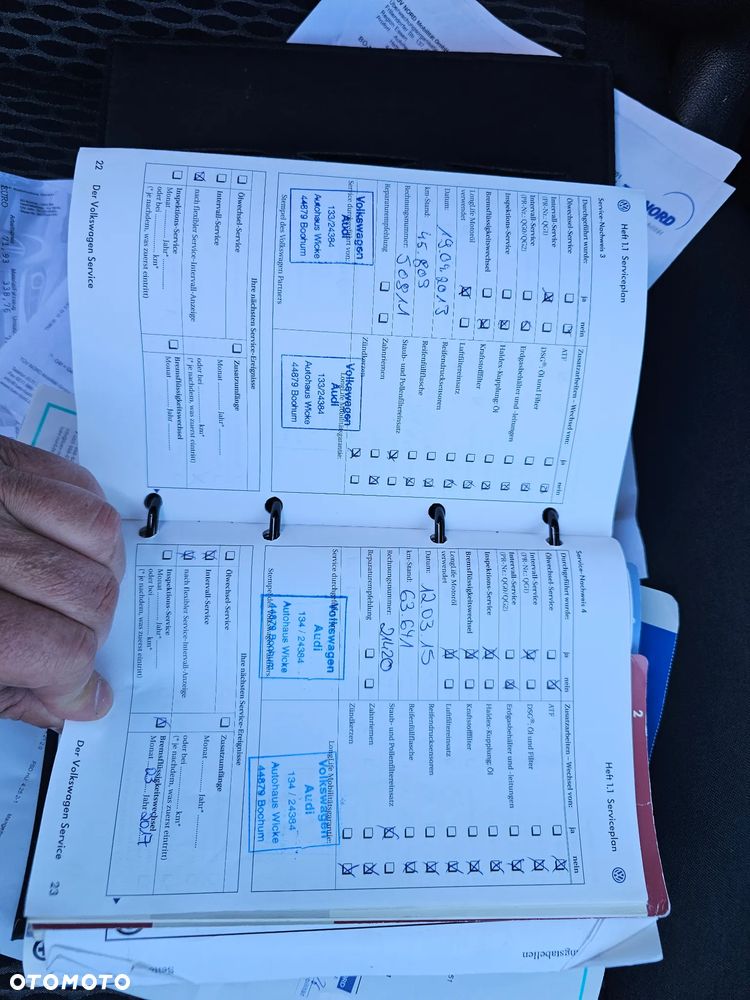 Heft 1.1 Serviceplan
Service-Nachweis 3
Durchgeführt wurde:
ja
nein
Zusatzarbeiten – Wechsel von:
ja
nein
Ölwechsel-Service
Intervall-Service
(PR-Nr. QG1)
Intervall-Service
(PR-Nr. QG0/QG2)
Inspektions-Service
Bremsflüssigkeitswechsel
LongLife Motoröl
verwendet
ATF
DSG®: Öl und Filter
Erdgasbehälter und -leitungen
Haldex-Kupplung: Öl
Kraftstofffilter
Luftfiltereinsatz
Reifendrucksensoren
Reifenfüllflasche
Staub- und Pollenfiltereinsatz
Zahnriemen
Zündkerzen
Datum:
km-Stand: 45.803
Rechnungsnummer: 50811
Reparaturempfehlung
Service durchgeführt von:
Volkswagen
Audi
133/24384
Autohaus Wicke
44879 Bochum
Stempel des Volkswagen Partners
Volkswagen
Audi
133/24384
Autohaus Wicke
44879 Bochum
Ihre nächsten Service-Ereignisse
Ölwechsel-Service
Intervall-Service
nach flexibler Service-Intervall-Anzeige
Inspektions-Service
Monat ........ Jahr* ........
oder bei ........ km*
(* je nachdem, was zuerst eintritt)
Zusatzumfänge
Monat ........ Jahr* ........
oder bei ........ km*
(* je nachdem, was zuerst eintritt)
Bremsflüssigkeitswechsel
Monat ........ Jahr ........
22 Der Volkswagen Service
Heft 1.1 Serviceplan
Service-Nachweis 4
Durchgeführt wurde:
ja
nein
Zusatzarbeiten – Wechsel von:
ja
nein
Ölwechsel-Service
Intervall-Service
(PR-Nr. QG1)
Intervall-Service
(PR-Nr. QG0/QG2)
Inspektions-Service
Bremsflüssigkeitswechsel
LongLife Motoröl
verwendet
ATF
DSG®: Öl und Filter
Erdgasbehälter und -leitungen
Haldex-Kupplung: Öl
Kraftstofffilter
Luftfiltereinsatz
Reifendrucksensoren
Reifenfüllflasche
Staub- und Pollenfiltereinsatz
Zahnriemen
Zündkerzen
Datum: 12.03.15
km-Stand: 63.641
Rechnungsnummer: 21420
Reparaturempfehlung
Service durchgeführt
LongLife Mobilitätsgarantie:
Volkswagen
Audi
134 / 24384
Autohaus Wicke
44879 Bochum
Stempel des Volkswagen Partners
Volkswagen
Audi
134 / 24384
Autohaus Wicke
44879 Bochum
Ihre nächsten Service-Ereignisse
Ölwechsel-Service
Intervall-Service
nach flexibler Service-Intervall-Anzeige
Inspektions-Service
Monat ........ Jahr* ........
oder bei ........ km*
(* je nachdem, was zuerst eintritt)
Zusatzumfänge
Monat ........ Jahr* ........
oder bei ........ km*
(* je nachdem, was zuerst eintritt)
Bremsflüssigkeitswechsel
Monat 03 Jahr 2017
Der Volkswagen Service 23
2
NORD
ngstabellen
OTOMOTO